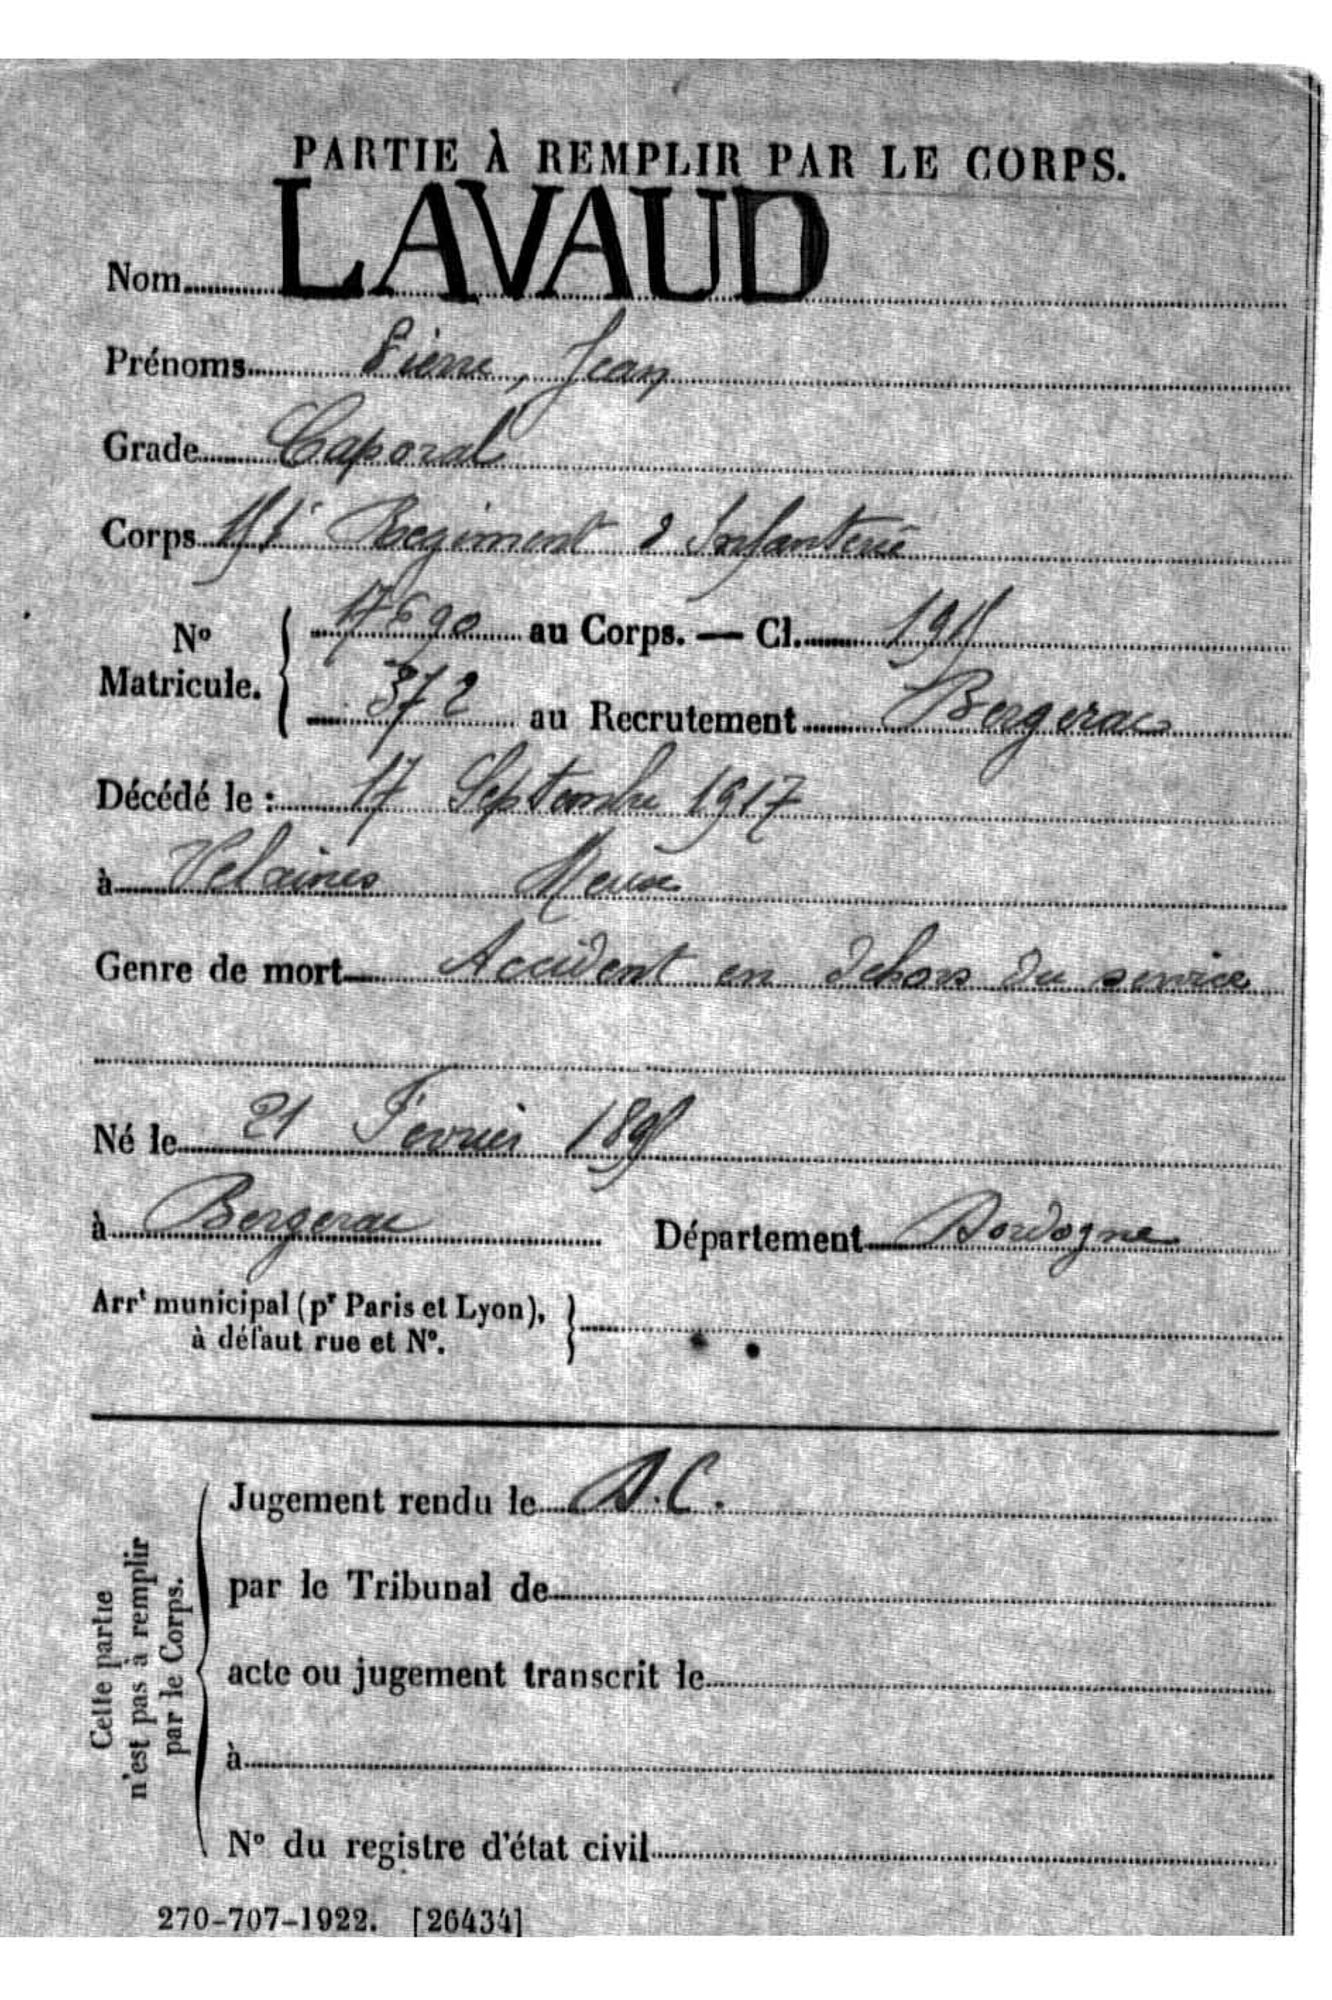 PARTIE À REMPLIR PAR LE CORPS.
Nom LAVAUD
Prénoms Pierre, Jean
Grade Caporal
Corps Régiment d'Infanterie
N° Matricule. 17690 au Corps. — Cl. 1915
372 au Recrutement Bergerac
Décédé le : 17 Septembre 1917
à Velaines Meuse
Genre de mort Accident en dehors du service
Né le 21 Février 1895
à Bergerac Département Dordogne
Arrt municipal (pr Paris et Lyon),
à défaut rue et N°.
Cette partie
n'est pas à remplir
par le Corps.
Jugement rendu le
par le Tribunal de
acte ou jugement transcrit le
à
N° du registre d'état civil
270-707-1922. [26434]